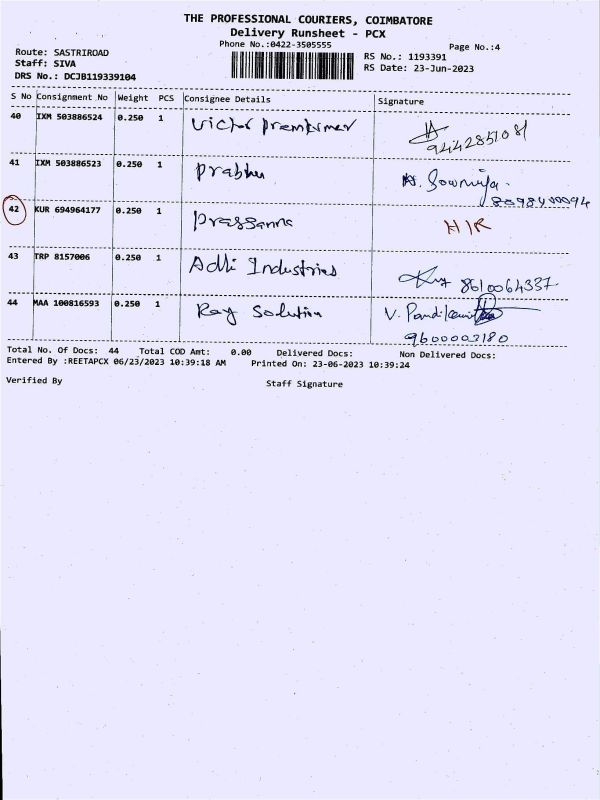 THE PROFESSIONAL COURIERS, COIMBATORE
Delivery Runsheet - PCX
Phone No.:0422-3505555
Page No.:4
Route: SASTRIROAD
Staff: SIVA
DRS No.: DCJB119339104
RS No.: 1193391
RS Date: 23-Jun-2023
S No Consignment No Weight PCS Consignee Details Signature
40 IXM 503886524 0.250 1 Victor
9442851081
41 IXM 503886523 0.250 1 Prabhu A. Sowmiya.
42 KUR 694964177 0.250 1 Prassanna
43 TRP 8157006 0.250 1 Adhi Industries 8610064337
44 MAA 100816593 0.250 1 Ray Solution V.
9600003180
Total No. Of Docs: 44 Total COD Amt: 0.00 Delivered Docs: Non Delivered Docs:
Entered By :REETAPCX 06/23/2023 10:39:18 AM Printed On: 23-06-2023 10:39:24
Verified By Staff Signature